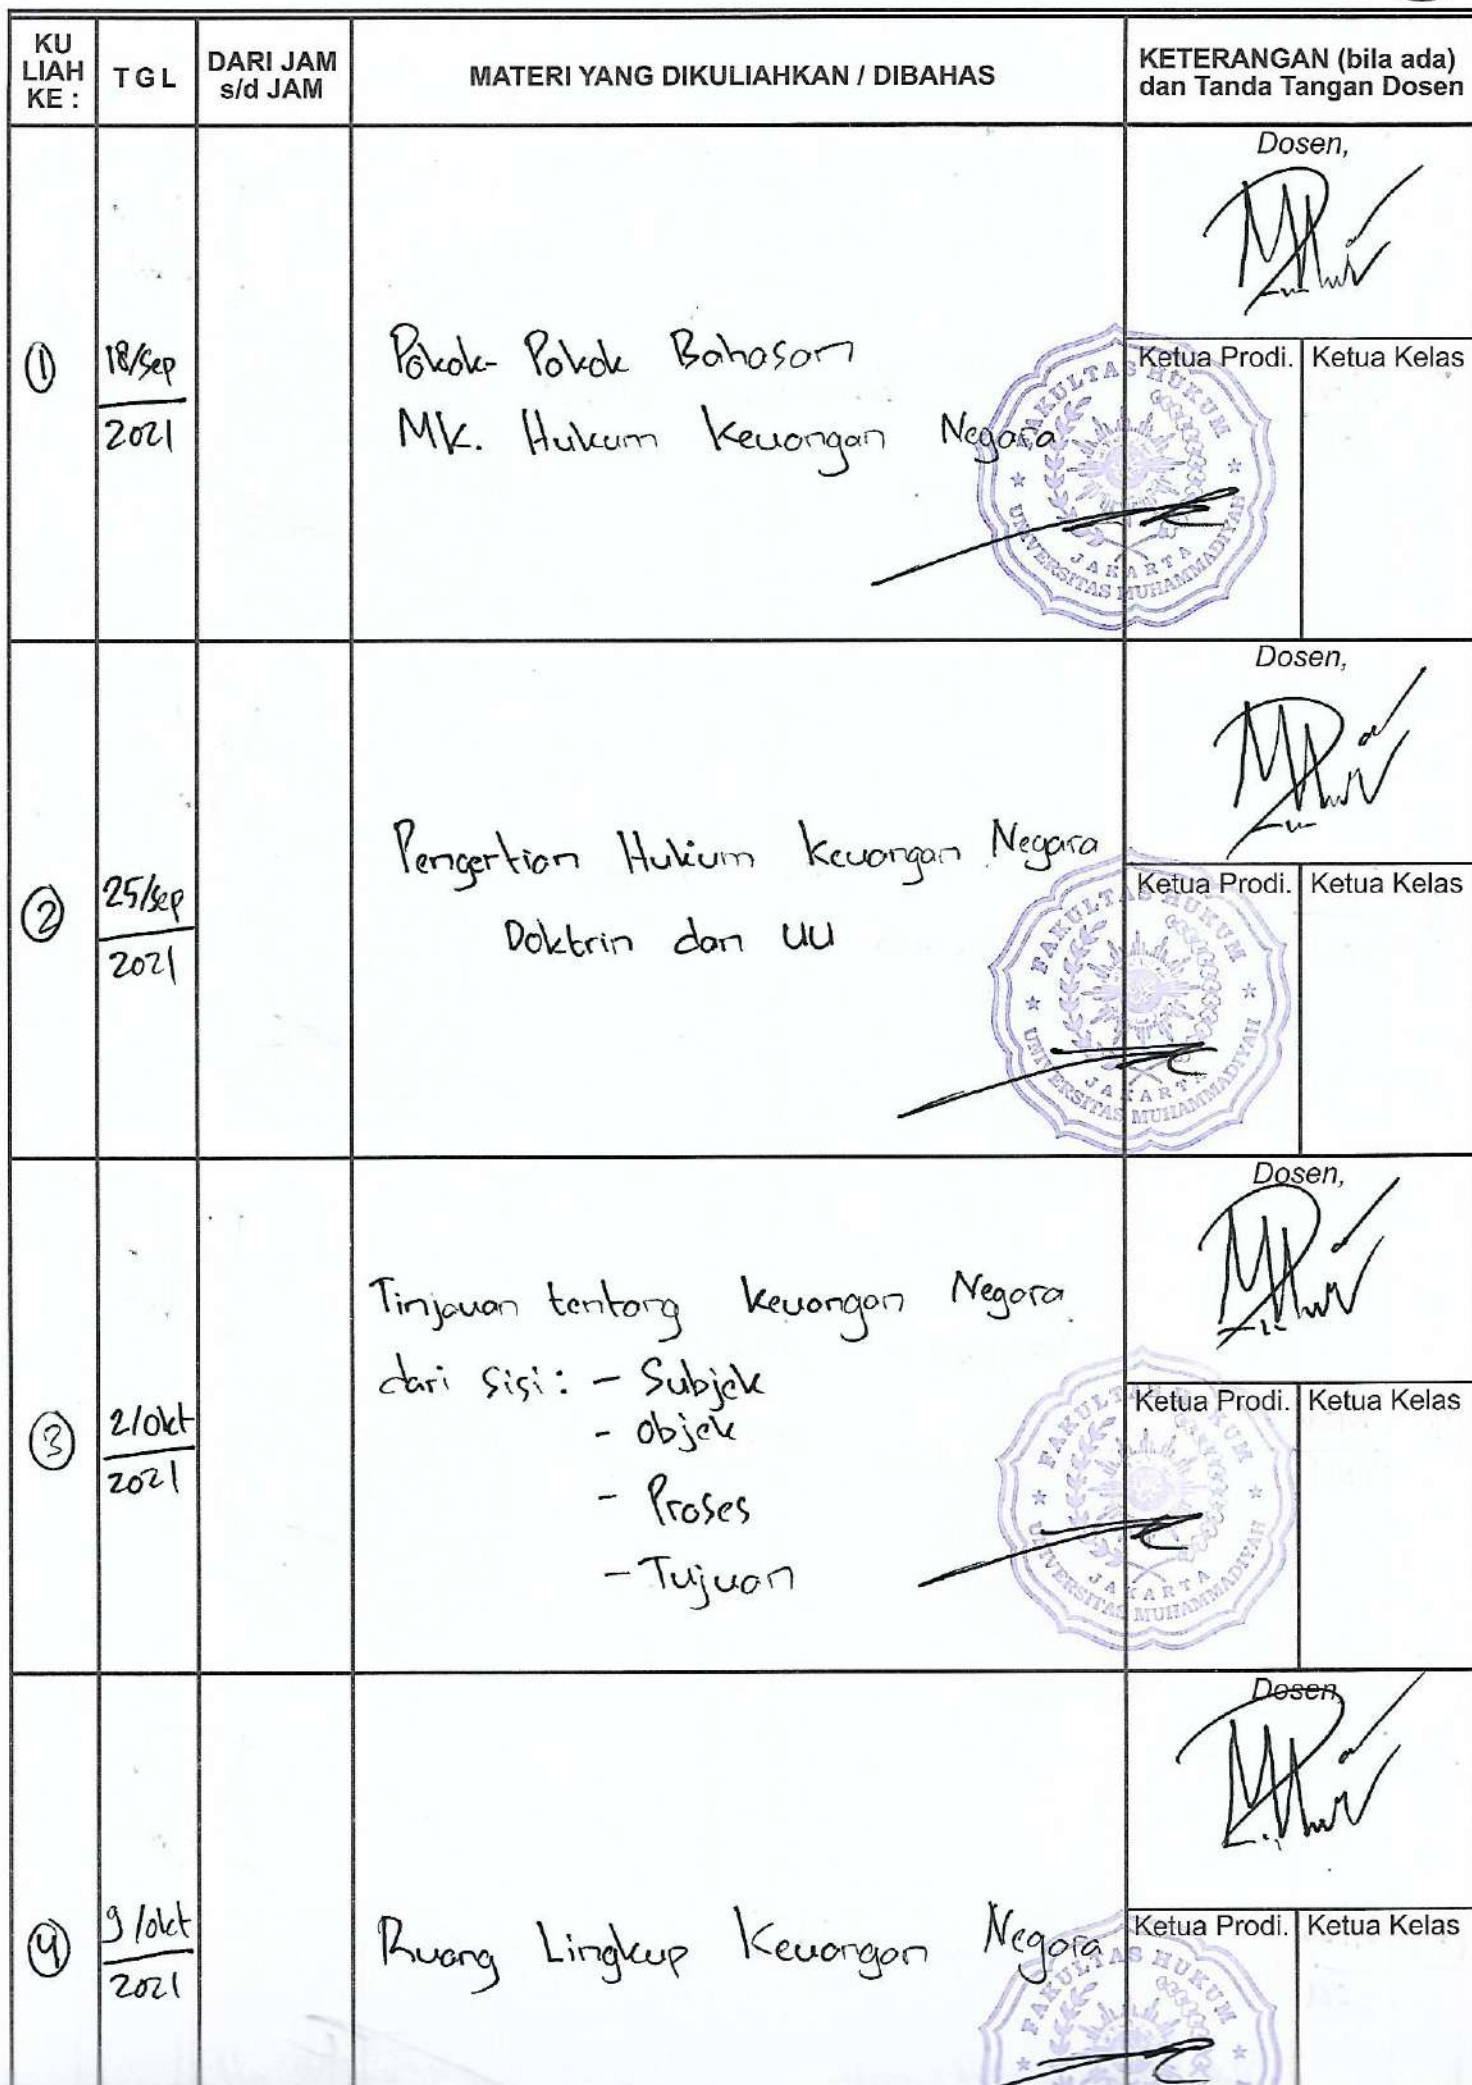 KU LIAH KE :
TGL
DARI JAM s/d JAM
MATERI YANG DIKULIAHKAN / DIBAHAS
KETERANGAN (bila ada) dan Tanda Tangan Dosen
1
18/Sep
2021
Pokok-Pokok Bahasan
MK. Hukum Keuangan Negara
Dosen,
Ketua Prodi.
Ketua Kelas
FAKULTAS HUKUM
UNIVERSITAS MUHAMMADIYAH
JAKARTA
2
25/Sep
2021
Pengertian Hukum Keuangan Negara
Doktrin dan UU
Dosen,
Ketua Prodi.
Ketua Kelas
FAKULTAS HUKUM
UNIVERSITAS MUHAMMADIYAH
JAKARTA
3
2/Okt
2021
Tinjauan tentang Keuangan Negara
dari sisi: - Subjek
- Objek
- Proses
- Tujuan
Dosen,
Ketua Prodi.
Ketua Kelas
FAKULTAS HUKUM
UNIVERSITAS MUHAMMADIYAH
JAKARTA
4
9/Okt
2021
Ruang Lingkup Keuangan Negara
Dosen,
Ketua Prodi.
Ketua Kelas
FAKULTAS HUKUM